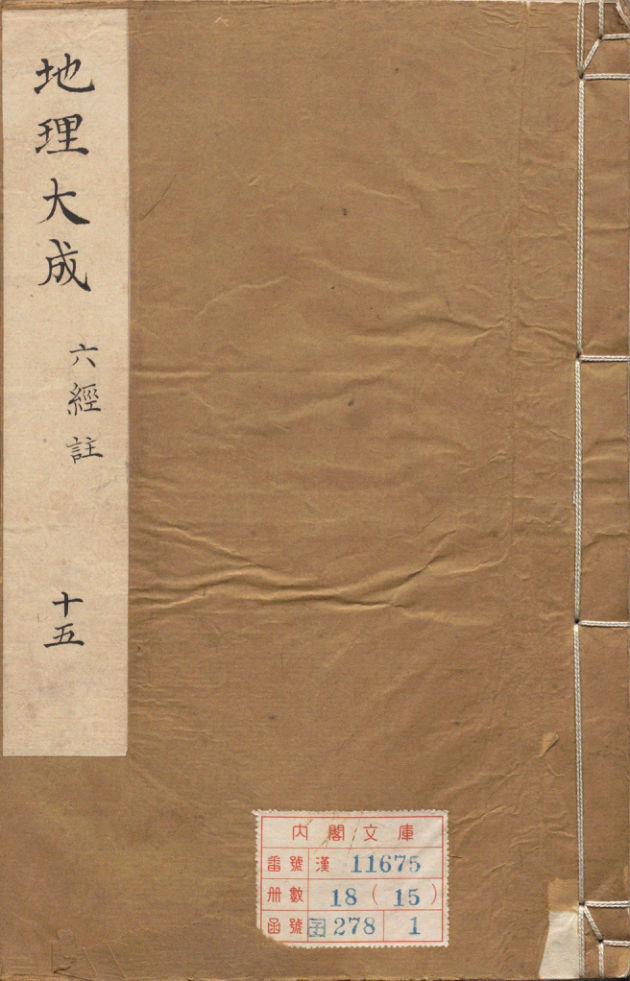 地理大成
六經註
十五
內閣文庫
番號 漢 11675
冊數 18 ( 15 )
函號 278 1